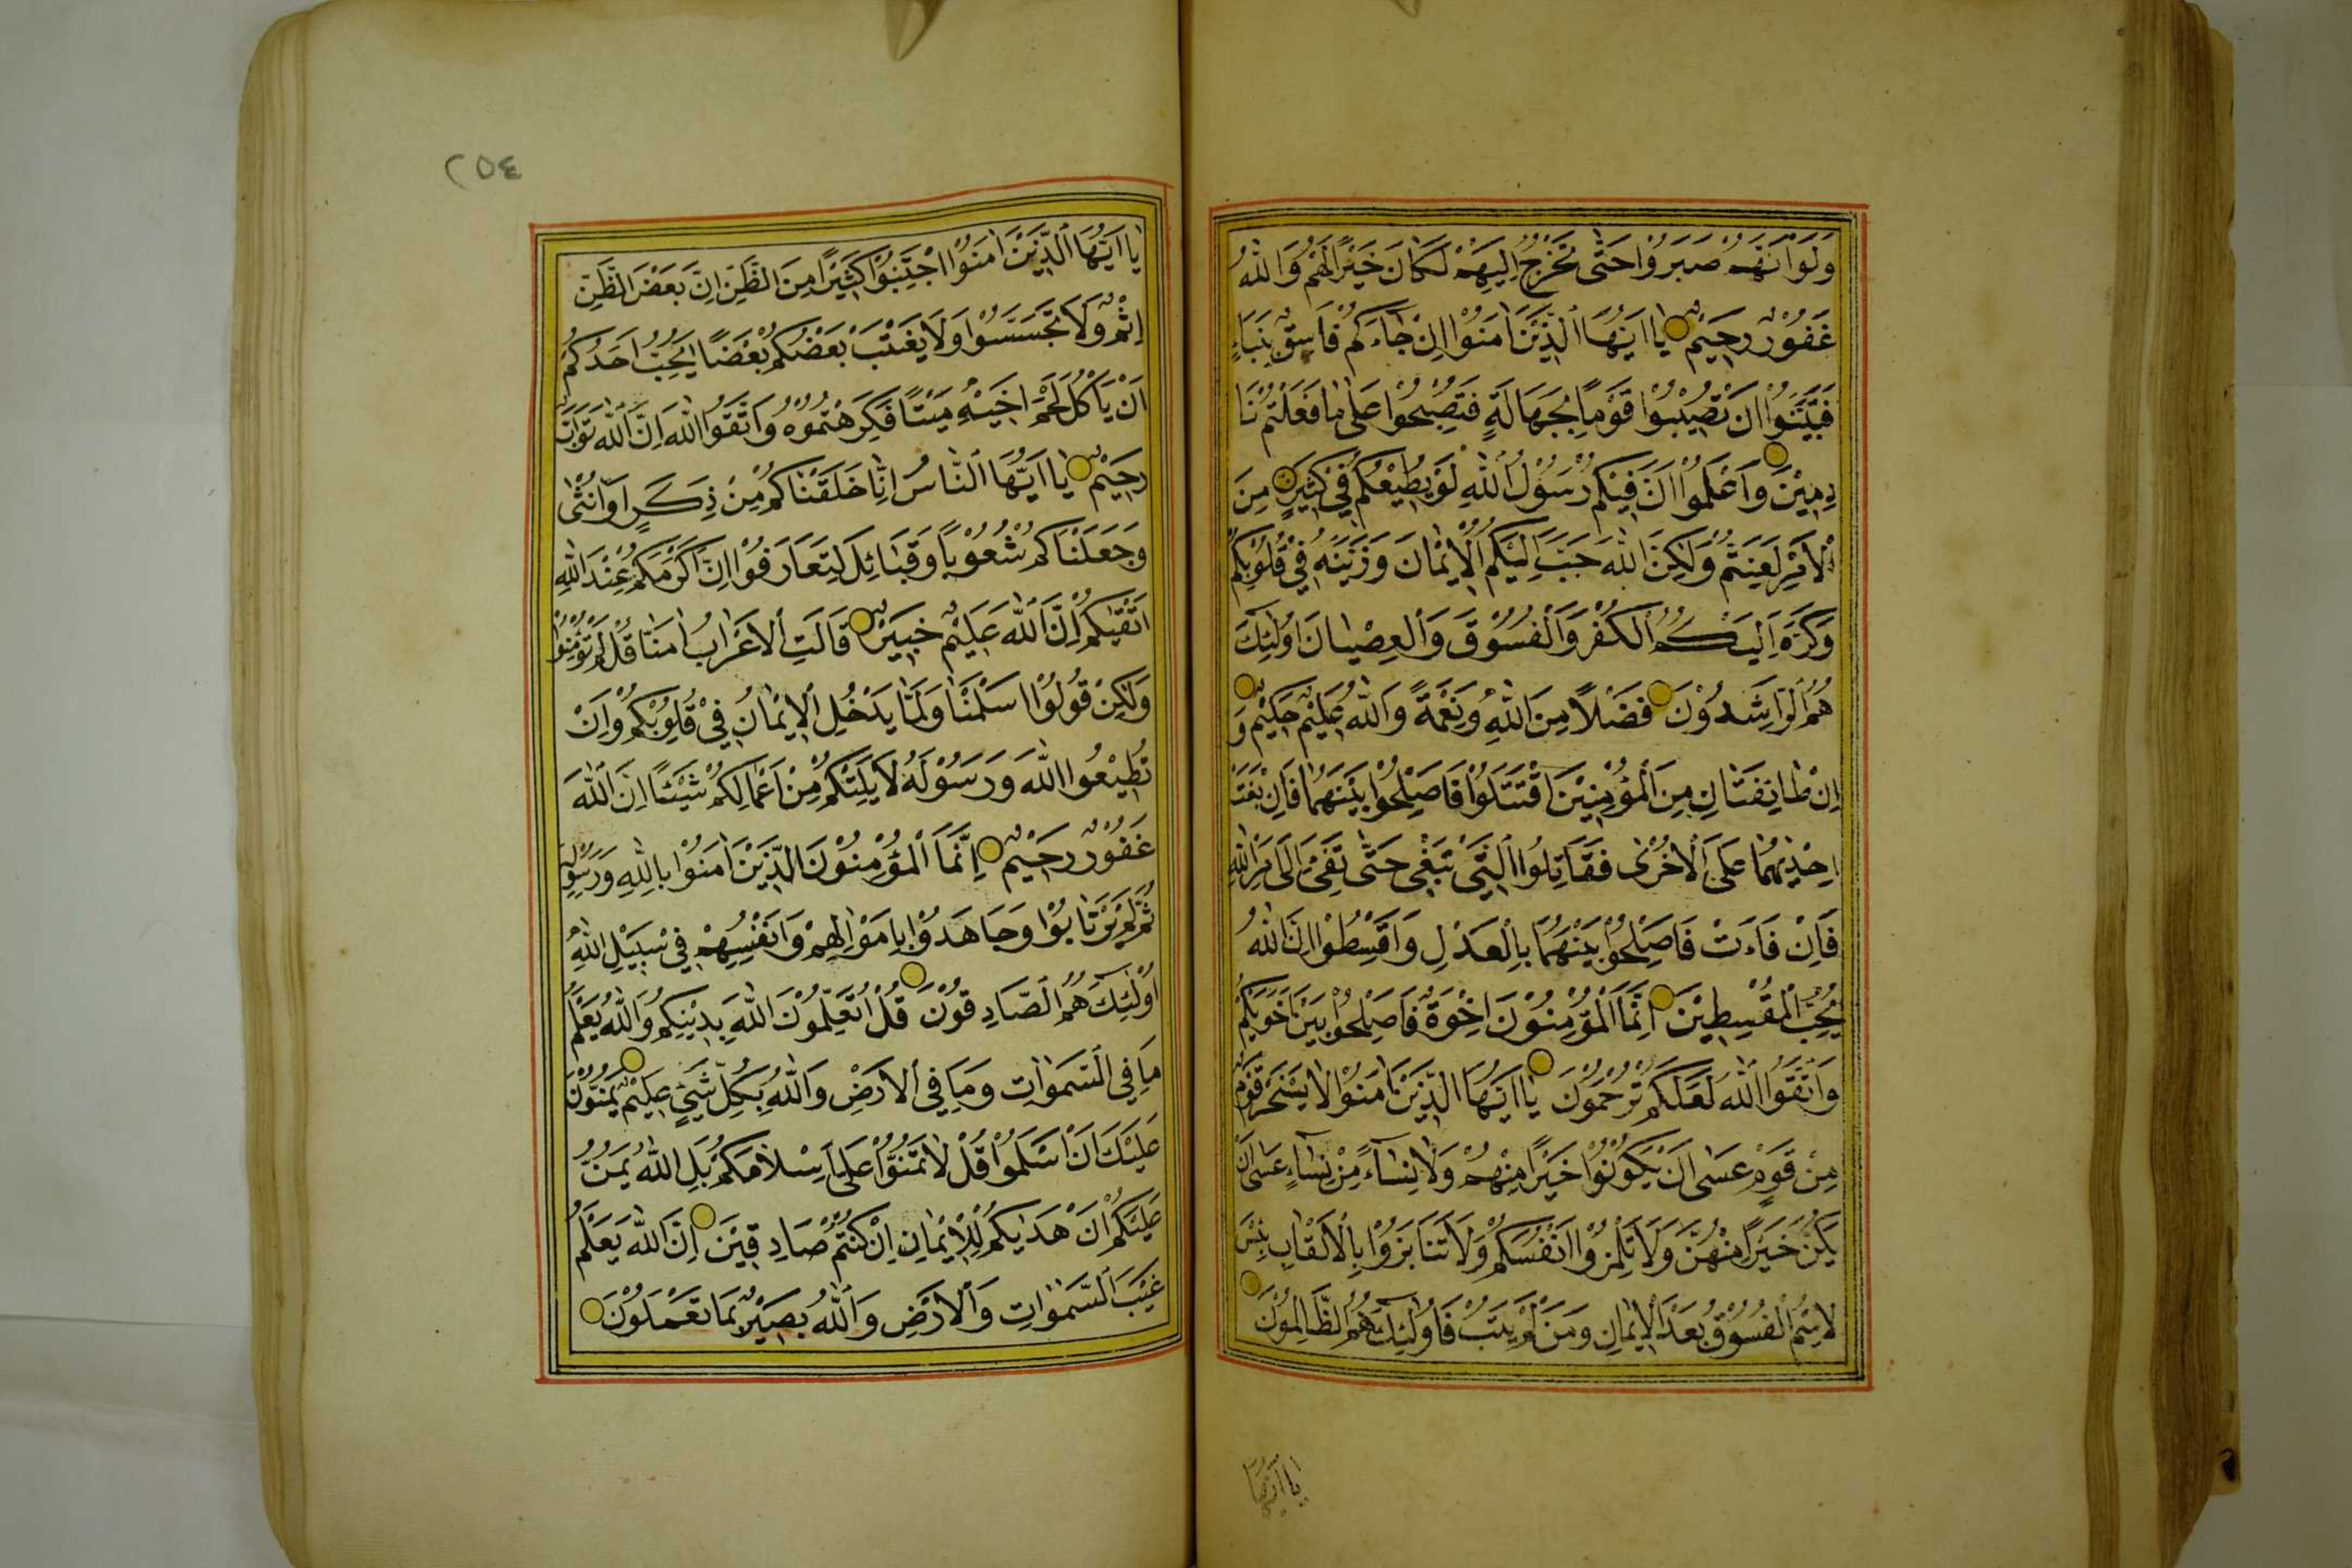 وَلَوْ اَنَّهُمْ صَبَرُوْا حَتّٰى تَخْرُجَ اِلَيْهِمْ لَكَانَ خَيْرًا لَهُمْ وَاللّٰهُ
غَفُوْرٌ رَحِيْمٌ يَا اَيُّهَا الَّذِيْنَ اٰمَنُوْا اِنْ جَاءَكُمْ فَاسِقٌ بِنَبَاءٍ
فَتَبَيَّنُوْا اَنْ تُصِيْبُوْا قَوْمًا بِجَهَالَةٍ فَتُصْبِحُوْا عَلٰى مَا فَعَلْتُمْ نَا
دِمِيْنَ وَاعْلَمُوْا اَنَّ فِيْكُمْ رَسُوْلَ اللّٰهِ لَوْ يُطِيْعُكُمْ فِيْ كَثِيْرٍ مِنَ
الْاَمْرِ لَعَنِتُّمْ وَلٰكِنَّ اللّٰهَ حَبَّبَ اِلَيْكُمُ الْاِيْمَانَ وَزَيَّنَهُ فِيْ قُلُوْبِكُمْ
وَكَرَّهَ اِلَيْكُمُ الْكُفْرَ وَالْفُسُوْقَ وَالْعِصْيَانَ اُولٰئِكَ
هُمُ الرَّاشِدُوْنَ فَضْلًا مِنَ اللّٰهِ وَنِعْمَةً وَاللّٰهُ عَلِيْمٌ حَكِيْمٌ وَ
اِنْ طَائِفَتَانِ مِنَ الْمُؤْمِنِيْنَ اقْتَتَلُوْا فَاَصْلِحُوْا بَيْنَهُمَا فَاِنْ بَغَتْ
اِحْدٰيهُمَا عَلَى الْاُخْرٰى فَقَاتِلُوا الَّتِيْ تَبْغِى حَتّٰى تَفِئَ اِلٰى اَمْرِ اللّٰهِ
فَاِنْ فَاءَتْ فَاَصْلِحُوْا بَيْنَهُمَا بِالْعَدْلِ وَاَقْسِطُوْا اِنَّ اللّٰهَ
يُحِبُّ الْمُقْسِطِيْنَ اِنَّمَا الْمُؤْمِنُوْنَ اِخْوَةٌ فَاَصْلِحُوْا بَيْنَ اَخَوَيْكُمْ
وَاتَّقُوا اللّٰهَ لَعَلَّكُمْ تُرْحَمُوْنَ يَا اَيُّهَا الَّذِيْنَ اٰمَنُوْا لَا يَسْخَرْ قَوْمٌ
مِنْ قَوْمٍ عَسٰى اَنْ يَكُوْنُوْا خَيْرًا مِنْهُمْ وَلَا نِسَاءٌ مِنْ نِسَاءٍ عَسٰى اَنْ
يَكُنَّ خَيْرًا مِنْهُنَّ وَلَا تَلْمِزُوْا اَنْفُسَكُمْ وَلَا تَنَابَزُوْا بِالْاَلْقَابِ بِئْسَ
الِاسْمُ الْفُسُوْقُ بَعْدَ الْاِيْمَانِ وَمَنْ لَمْ يَتُبْ فَاُولٰئِكَ هُمُ الظَّالِمُوْنَ
يا ايها
٢٥٤
يَا اَيُّهَا الَّذِيْنَ اٰمَنُوْا اجْتَنِبُوْا كَثِيْرًا مِنَ الظَّنِّ اِنَّ بَعْضَ الظَّنِّ
اِثْمٌ وَلَا تَجَسَّسُوْا وَلَا يَغْتَبْ بَعْضُكُمْ بَعْضًا اَيُحِبُّ اَحَدُكُمْ
اَنْ يَأْكُلَ لَحْمَ اَخِيْهِ مَيْتًا فَكَرِهْتُمُوْهُ وَاتَّقُوا اللّٰهَ اِنَّ اللّٰهَ تَوَّابٌ
رَحِيْمٌ يَا اَيُّهَا النَّاسُ اِنَّا خَلَقْنَاكُمْ مِنْ ذَكَرٍ اَوْ اُنْثٰى
وَجَعَلْنَاكُمْ شُعُوْبًا وَقَبَائِلَ لِتَعَارَفُوْا اِنَّ اَكْرَمَكُمْ عِنْدَ اللّٰهِ
اَتْقٰيكُمْ اِنَّ اللّٰهَ عَلِيْمٌ خَبِيْرٌ قَالَتِ الْاَعْرَابُ اٰمَنَّا قُلْ لَمْ تُؤْمِنُوْا
وَلٰكِنْ قُوْلُوْا اَسْلَمْنَا وَلَمَّا يَدْخُلِ الْاِيْمَانُ فِيْ قُلُوْبِكُمْ وَاِنْ
تُطِيْعُوا اللّٰهَ وَرَسُوْلَهُ لَا يَلِتْكُمْ مِنْ اَعْمَالِكُمْ شَيْئًا اِنَّ اللّٰهَ
غَفُوْرٌ رَحِيْمٌ اِنَّمَا الْمُؤْمِنُوْنَ الَّذِيْنَ اٰمَنُوْا بِاللّٰهِ وَرَسُوْلِهِ
ثُمَّ لَمْ يَرْتَابُوْا وَجَاهَدُوْا بِاَمْوَالِهِمْ وَاَنْفُسِهِمْ فِيْ سَبِيْلِ اللّٰهِ
اُولٰئِكَ هُمُ الصَّادِقُوْنَ قُلْ اَتُعَلِّمُوْنَ اللّٰهَ بِدِيْنِكُمْ وَاللّٰهُ يَعْلَمُ
مَا فِي السَّمٰوَاتِ وَمَا فِي الْاَرْضِ وَاللّٰهُ بِكُلِّ شَيْءٍ عَلِيْمٌ يَمُنُّوْنَ
عَلَيْكَ اَنْ اَسْلَمُوْا قُلْ لَا تَمُنُّوْا عَلَى اِسْلَامَكُمْ بَلِ اللّٰهُ يَمُنُّ
عَلَيْكُمْ اَنْ هَدٰيكُمْ لِلْاِيْمَانِ اِنْ كُنْتُمْ صَادِقِيْنَ اِنَّ اللّٰهَ يَعْلَمُ
غَيْبَ السَّمٰوَاتِ وَالْاَرْضِ وَاللّٰهُ بَصِيْرٌ بِمَا تَعْمَلُوْنَ